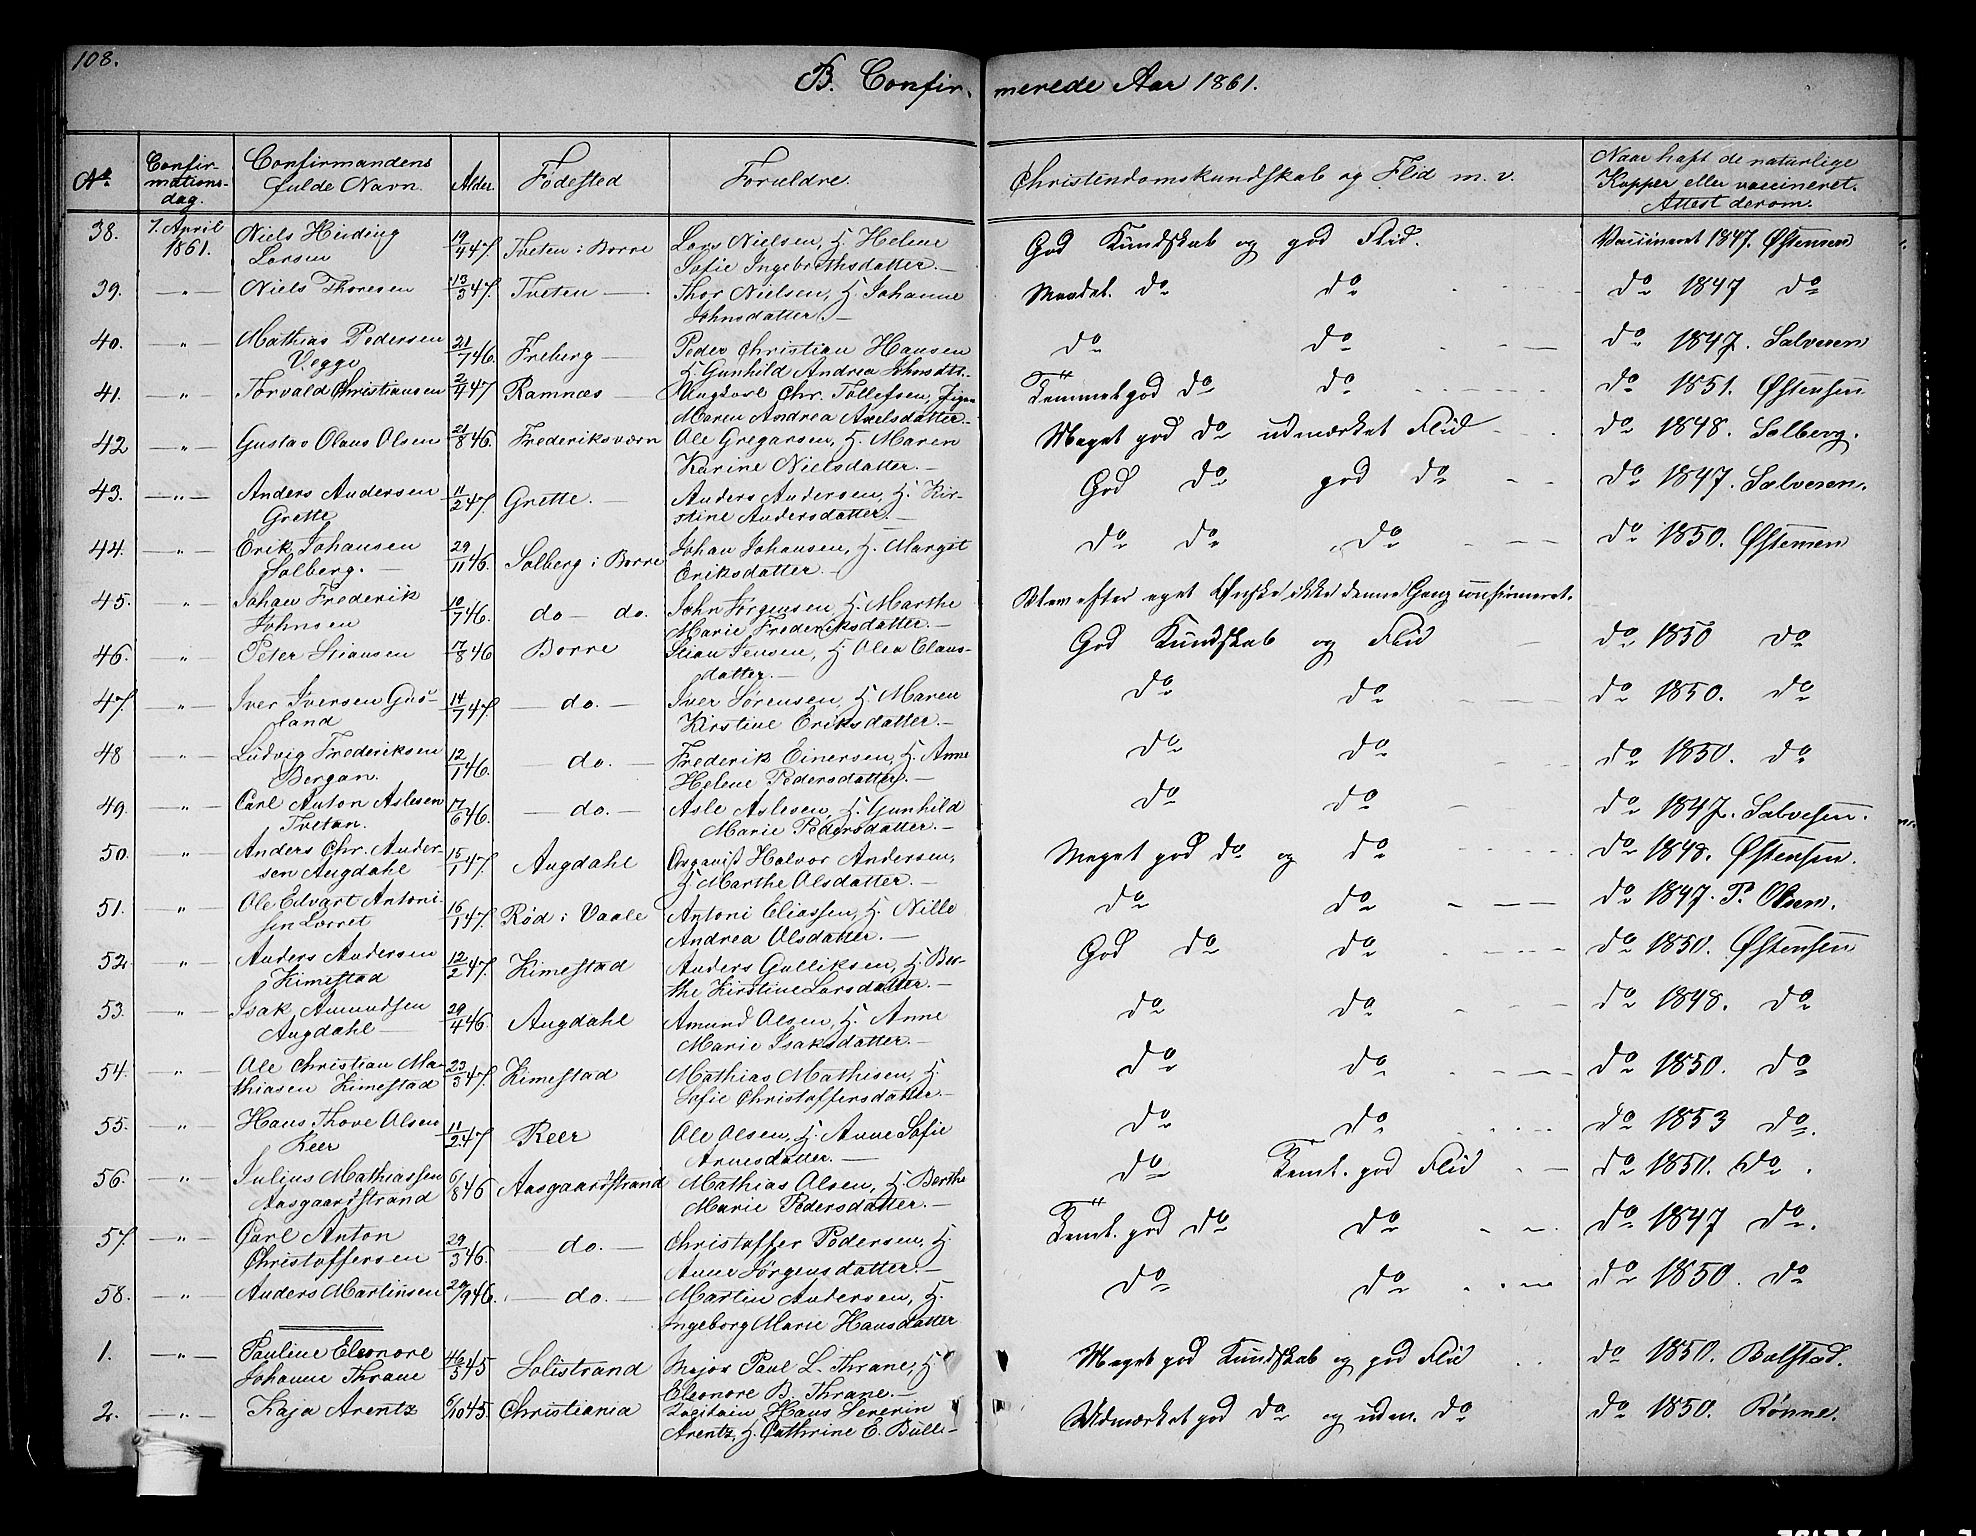 108.
B. Confirmerede Aar 1861.
No. Confirmationsdag. Confirmandens fulde Navn. Alder. Fødested Foruldre. Christendomskundskab og Flid m. v. Naar haft de naturlige Kopper eller vaccineret. Attest derom.
38. 7. April 1861. Niels Heiding Larsen 19/4 47. Tveten i Borre Lars Nielsen, H. Helene Sofie Ingebrethsdatter.— God Kundskab og god Flid. Vaccineret 1847. Østensen
39. —"— Niels Thoresen 13/3 47. Tveten — Thor Nielsen, H. Johanne Johnsdatter.— Maadel. do do do 1847 do
40. " Mathias Pedersen Vegge 21/7 46. Freberg — Peder Christian Hansen H. Gunhild Andrea Johnsdtt. do do do 1847. Salvesen
41. —"— Torvald Christiansen 2/4 47 Ramnæs — Ungkarl Chr. Tollefsen, Pige Maren Andrea Axelsdatter.— Temmet god do do do 1851. Østensen
42 —"— Gustav Olaus Olsen 21/8 46. Frederiksværn Ole Gregarsen, H. Maren Karine Nielsdatter.— Meget god do udmærket Flid do 1848. Solberg.
43. —"— Anders Andersen Grette 11/2 47. Grette. — Anders Andersen, H. Kirstine Andersdatter.— God do god do do 1847. Salvesen.
44. —"— Erik Johansen Solberg. — 29/11 46. Solberg i Borre Johan Johansen, H. Margit Eriksdatter.— do do " do do 1850. Østensen
45. "— Johan Frederik Johnsen 10/7 46. do — do. John Jørgensen, H. Marthe Marie Frederiksdatter.— Blev efter eget Ønske ikke denne Gang confirmeret.
46. "— Peter Stiansen 17/8 46 Borre Stian Jensen, H. Olea Clausdatter.— God Kundskab og Flid do 1850 do
47. " Iver Iversen Gusland 14/7 47. — do. — Iver Sørensen H. Maren Kirstine Eriksdatter.— do do do 1850. do
48 " Ludvig Frederiksen Bergan. 12/1 46. — do. — Frederik Einersen, H. Anne Helene Pedersdatter.— do do do 1850. do
49. " Carl Anton Aslesen Tvetan. 17/6 46. — do. — Asle Aslesen, H. Gunhild Marie Pedersdatter.— do do do 1847. Salvesen.
50. " Anders Chr. Andersen Augdahl 15/1 47. Augdahl Halvor Andersen, H Marthe Olsdatter.— Meget god do og do do 1848. Østensen.
51. —"— Ole Edvart Antonisen Lorret 16/1 47. Rød i Vaale Antoni Eliassen, H. Nille Andrea Olsdatter.— do do do 1847. P. Olsen.
52. " Anders Andersen Kimestad 12/2 47. Kimestad Anders Gulliksen, H. Berthe Kirstine Larsdatter.— God do do do 1850. Østensen
53. —"— Isak Amundsen Augdahl — 29/4 46. Augdahl Amund Olsen, H. Anne Marie Isaksdatter.— do do do 1848. do
54. —"— Ole Christian Mathiasen Kimestad 23/3 47. Kimestad Mathias Mathisen, H. Sofie Christoffersdatter.— do do do 1850. do
55. " Hans Thove Olsen Reer 11/2 47 Reer Ole Olsen, H. Anne Sofie Arnesdatter.— do do do 1853 do.
56. —"— Julius Mathiassen Aasgaardsstrand 6/8 46 Aasgaardsstrand Mathias Olsen, H. Berthe Marie Pedersdatter.— do Temt. god Flid do 1850. do.
57. —"— Carl Anton Christoffersen 29/3 46. do. — Christoffer Pedersen, H. Anne Jørgensdatter.— Temt. god do do do 1847 do.
58. —"— Anders Martinsen 20/9 46. — do. — Martin Andersen, H. Ingeborg Marie Hansdatter do do do 1850. do
1. —"— Pauline Eleonore Johanne Thrane /5 45 Solistrand Major Paul L. Thrane, H Eleonore B. Thrane.— Meget god Kundskab og god Flid do 1850. Balstad.
2. —"— Kaja Arentz 6/10 45. Christiania Kapitain Hans Severin Arentz, H. Cathrine E. Bull.— Udmærket god do og udm. do do 1850. Rønne.